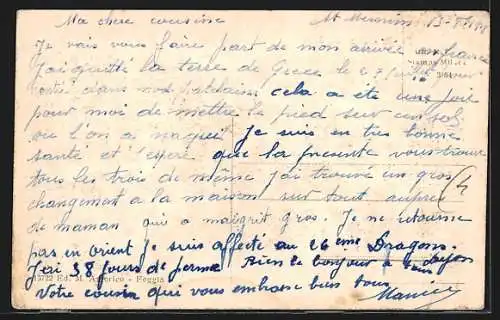 Ma chere cousine
Je vais vous faire part de mon arrivée en france
J'ai quitté la terre de Grece le 27 juillet
cela a été une joie
pour moi de mettre le pied sur un sol
ou l'on a naquit Je suis en tres bonne
santé et j'espere que la presente vous trouve
tous les trois de même J'ai trouvé un gros
changement a la maison sur tout aupres
de maman qui a maigrit gros. Je ne retourne
pas en Orient Je suis affecté au 26eme Dragons.
J'ai 38 jours de perme Bien le bonjour a tous
15722 Ed. M. - Foggia
Votre cousin qui vous embrasse bien tous
Maurice